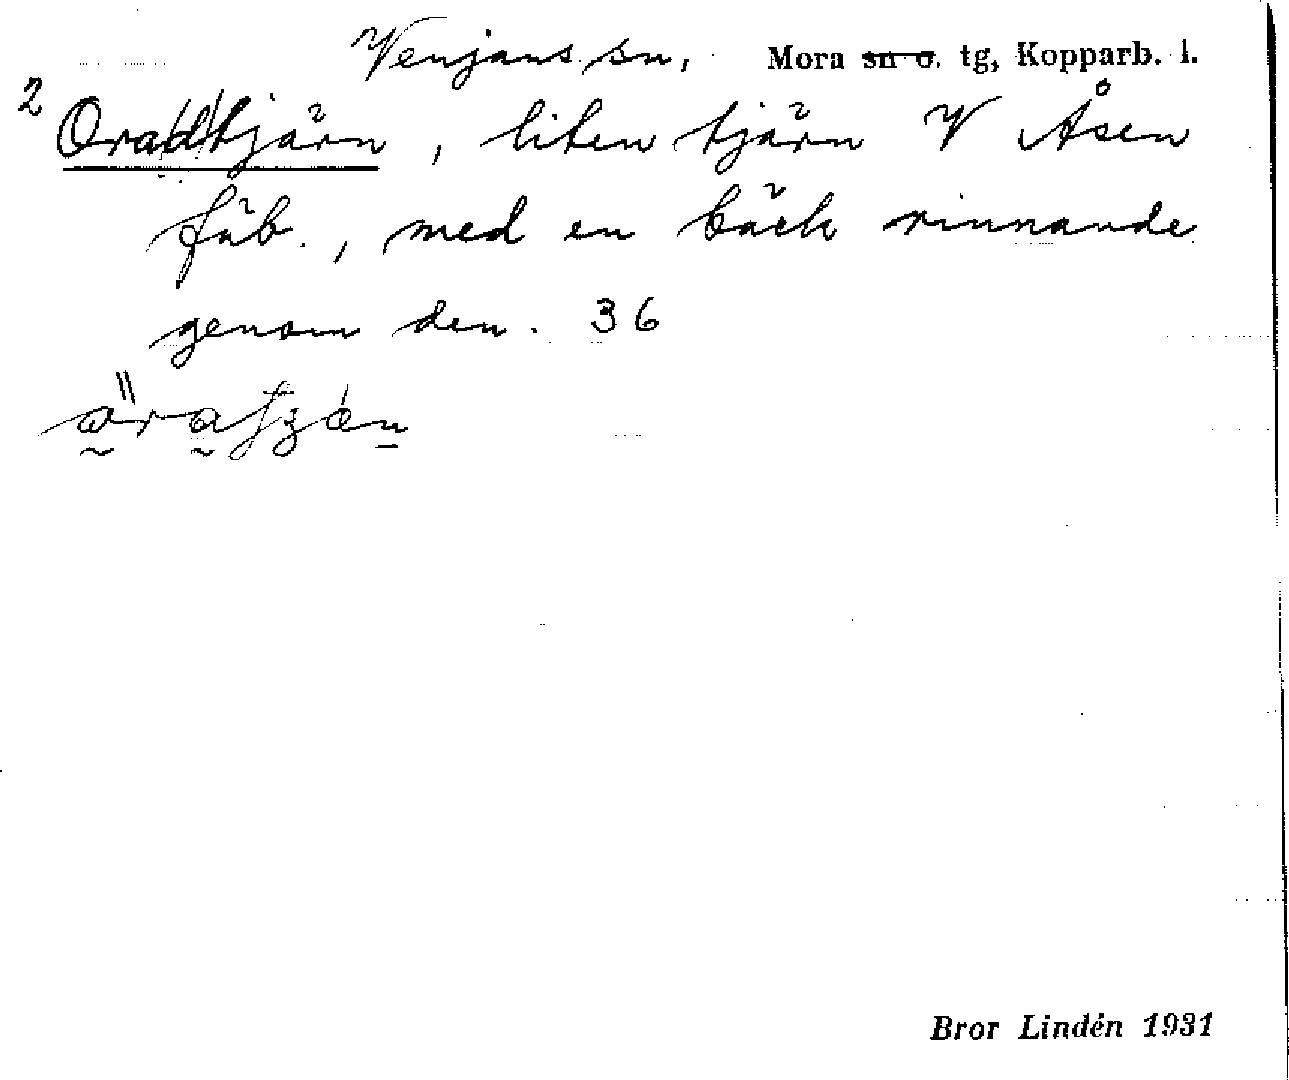 Venjans sn, Mora sn o. tg, Kopparb. l.
2 Ora(d)tjärn, liten tjärn V Åsen
fäb., med en bäck rinnande
genom den. 36
Bror Lindén 1931